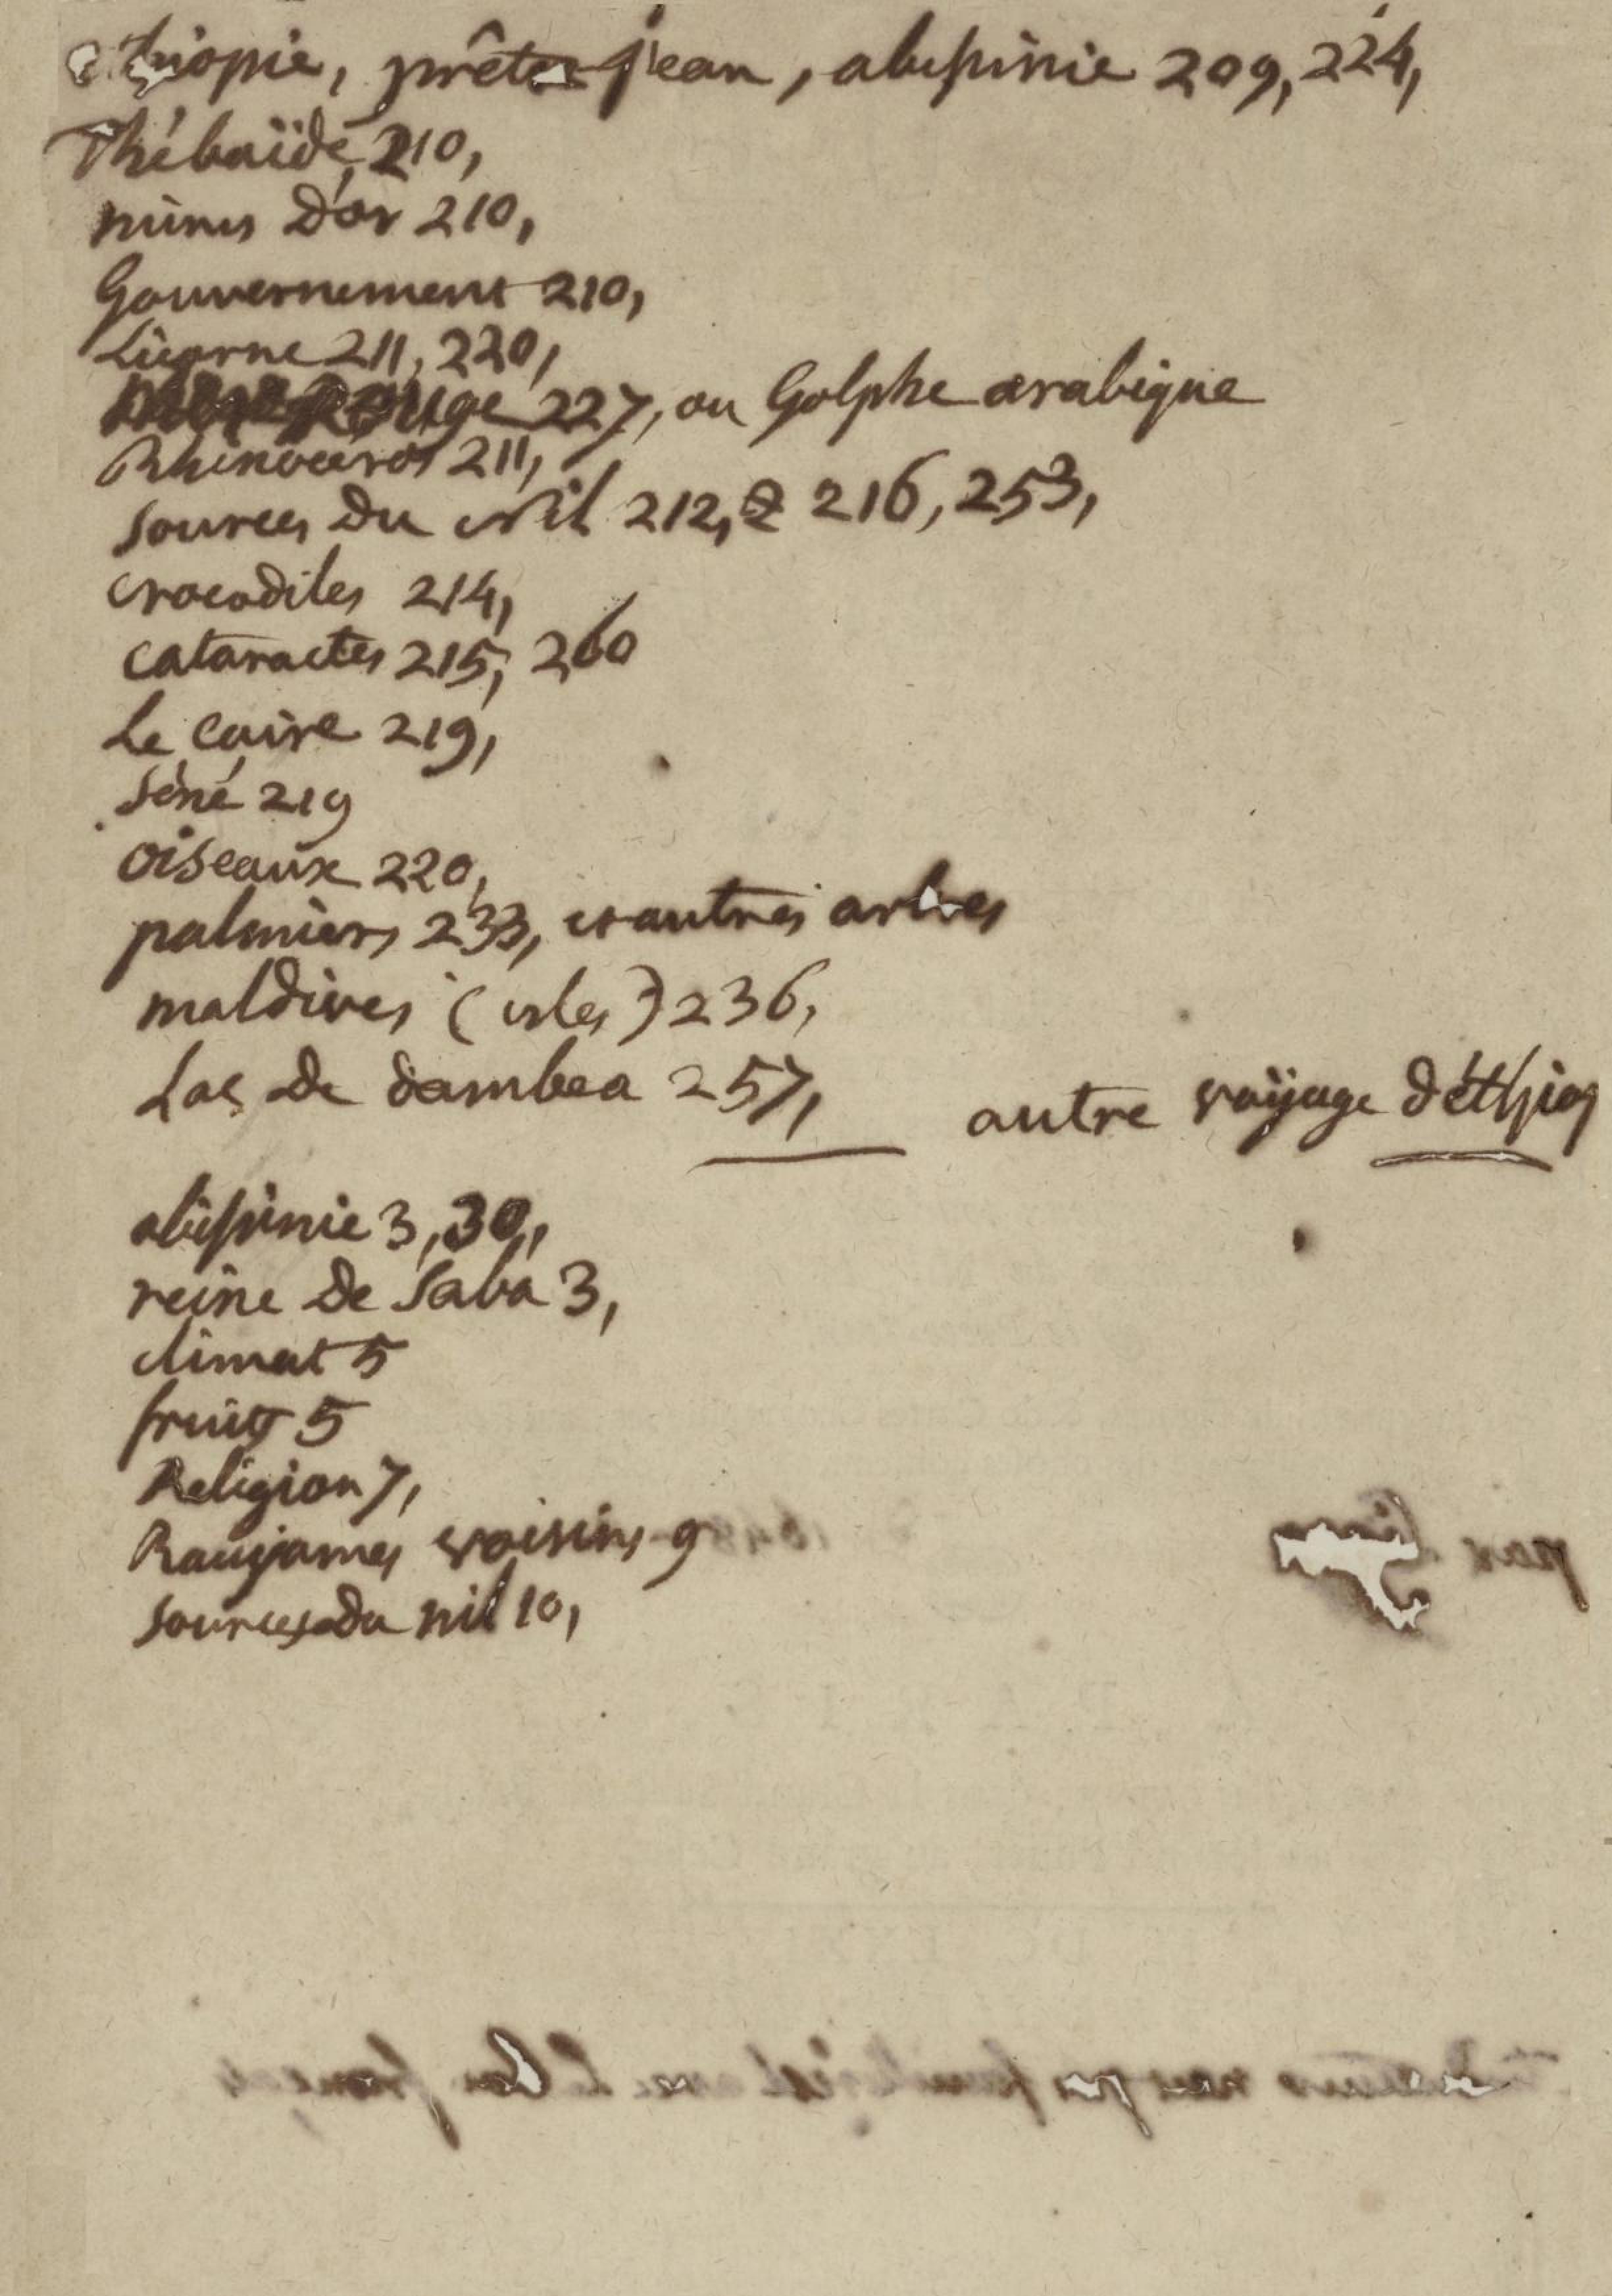 ethiopie, prête jean, abissinie 209, 224,
Thébaïde, 210,
mines d'or 210,
Gouvernement 210,
Licorne 211, 220,
mer rouge 227, ou Golphe arabique
Rhinoceros 211,
sources du Nil 212, & 216, 253,
crocodiles 214,
cataractes 215, 260
Le Caire 219,
séné 219
oiseaux 220,
palmiers 233, et autres arbres
maldives (isles) 236,
Lac de dambea 257,
autre voÿage d'éthiop
abissinie 3, 30,
reine de Saba 3,
climat 5
fruits 5
Religion 7,
Roaüjames voisins 9
sources du nil 10,